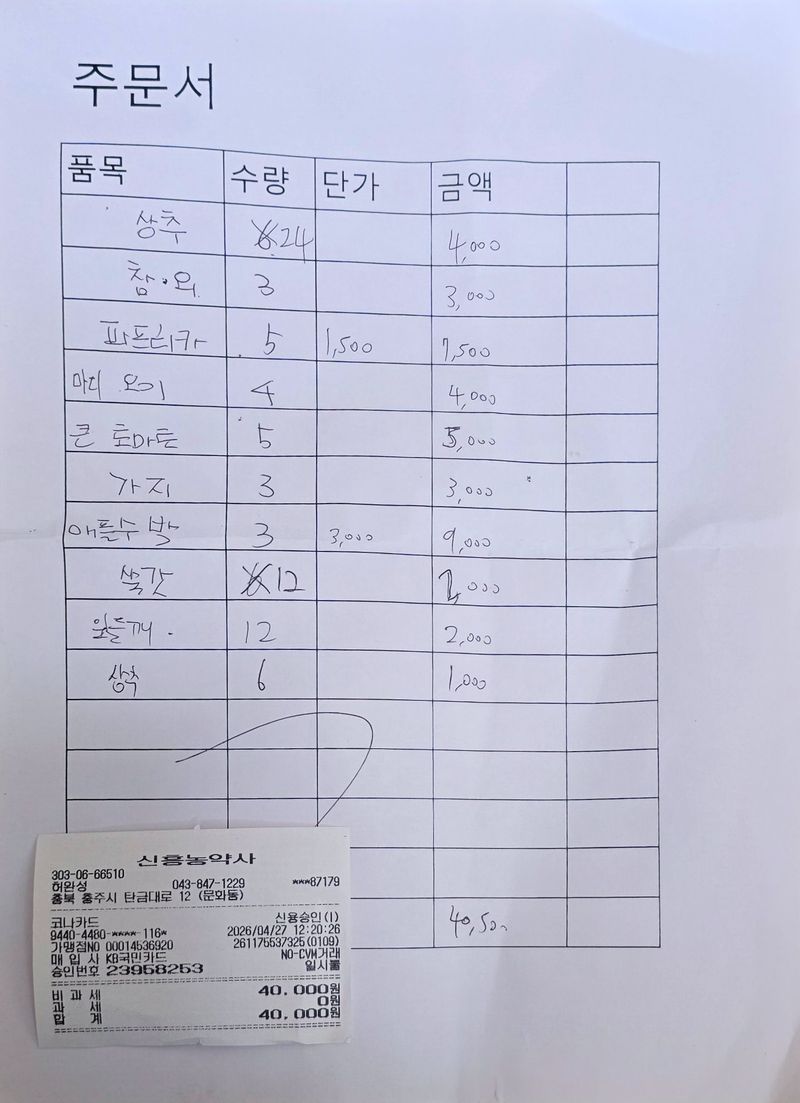 주문서
품목 수량 단가 금액
상추 24 4,000
참외 3 3,000
파프리카 5 1,500 7,500
마디 오이 4 4,000
큰 토마토 5 5,000
가지 3 3,000
애플수박 3 3,000 9,000
쑥갓 12 2,000
잎들깨 12 2,000
상추 6 1,000
40,500
신흥농약사
303-06-66510
허완성 043-847-1229 ***87179
충북 충주시 탄금대로 12 (문화동)
코나카드 신용승인(I)
9440-4480-****-116* 2026/04/27 12:20:26
가맹점NO 00014536920 261175537325(0109)
매 입 사 KB국민카드 NO-CVM거래
승인번호 23958253 일시불
비 과 세 40,000원
과 세 0원
합 계 40,000원